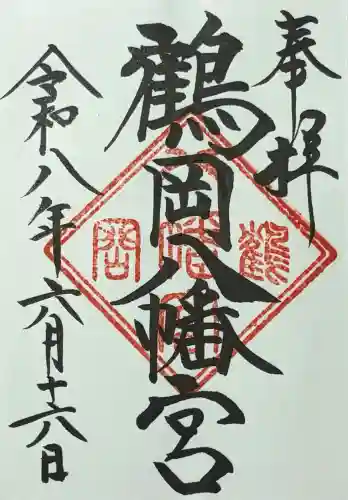 奉拝
鶴岡八幡宮
令和八年六月十六日
鶴
岡